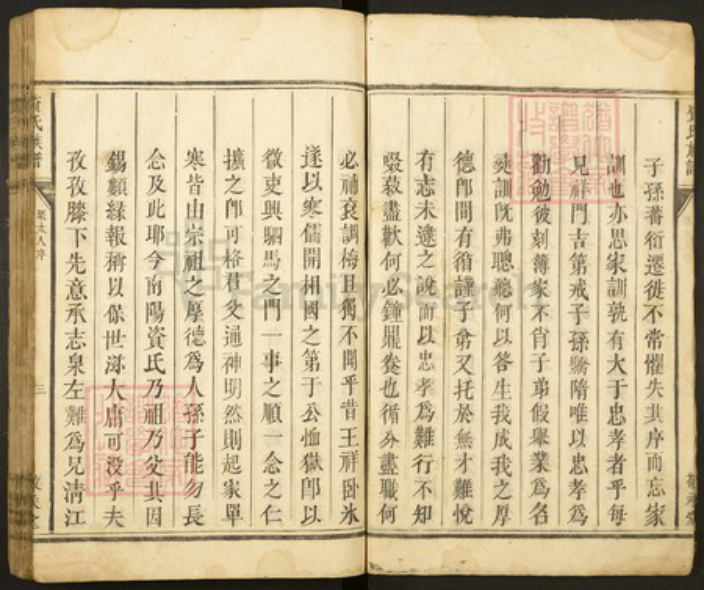 子孫蕃衍遷徙不常懼失其序而忘家
訓也亦思家訓孰有大于忠孝者乎每
見祥門吉第戒子孫驕隋唯以忠孝爲
勸勉彼刻薄家不肖子弟假舉業爲名
訓既弗聰聽何以答生我成我之厚
德卽間有循謹子弟又托於無才難悅
有志未逮之說而以忠孝爲難行不知
啜菽盡歡何必鐘鼎養也循分盡職何
必補袞調梅且獨不聞乎昔王祥臥氷
遂以寒儒開相國之第于公恤獄卽以
微吏興駟馬之門一事之順一念之仁
擴之卽可格君父通神明然則起家單
寒皆由宗祖之厚德爲人孫子能勿長
念及此耶今南陽資氏乃祖乃父其因
錫類緣報稱以保世滋大庸可没乎夫
孜孜膝下先意承志泉左難爲兄清江
資氏族譜
栗太人序
三
敦
FamilySearch